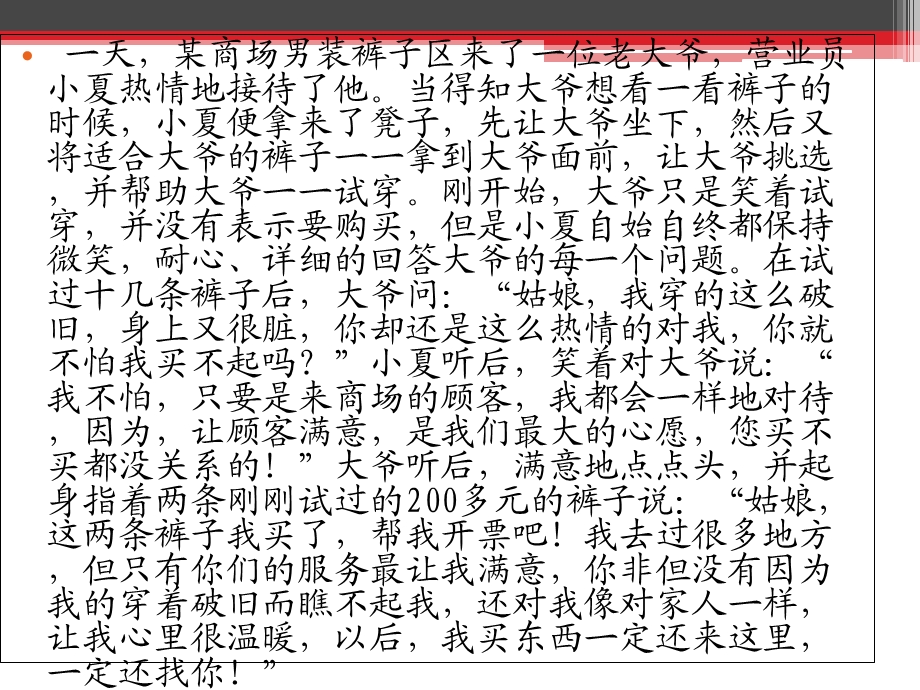 • 一天，某商场男装裤子区来了一位老大爷，营业员
小夏热情地接待了他。当得知大爷想看一看裤子的
时候，小夏便拿来了凳子，先让大爷坐下，然后又
将适合大爷的裤子一一拿到大爷面前，让大爷挑选
，并帮助大爷一一试穿。刚开始，大爷只是笑着试
穿，并没有表示要购买，但是小夏自始自终都保持
微笑，耐心、详细的回答大爷的每一个问题。在试
过十几条裤子后，大爷问：“姑娘，我穿的这么破
旧，身上又很脏，你却还是这么热情的对我，你就
不怕我买不起吗？”小夏听后，笑着对大爷说：“
我不怕，只要是来商场的顾客，我都会一样地对待
，因为，让顾客满意，是我们最大的心愿，您买不
买都没关系的！”大爷听后，满意地点点头，并起
身指着两条刚刚试过的200多元的裤子说：“姑娘，
这两条裤子我买了，帮我开票吧！我去过很多地方
，但只有你们的服务最让我满意，你非但没有因为
我的穿着破旧而瞧不起我，还对我像对家人一样，
让我心里很温暖，以后，我买东西一定还来这里，
一定还找你！”